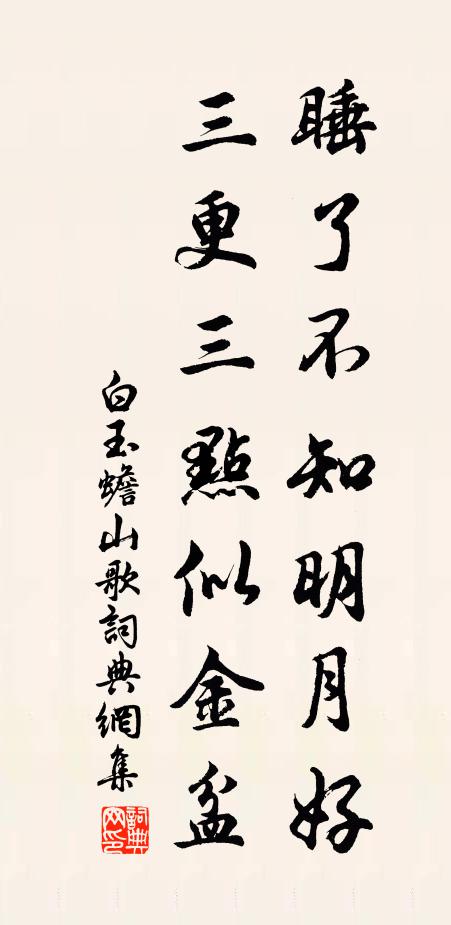 睡了不知明月好
三更三點似金盆
白玉蟾山歌詞典網集
詞典网印